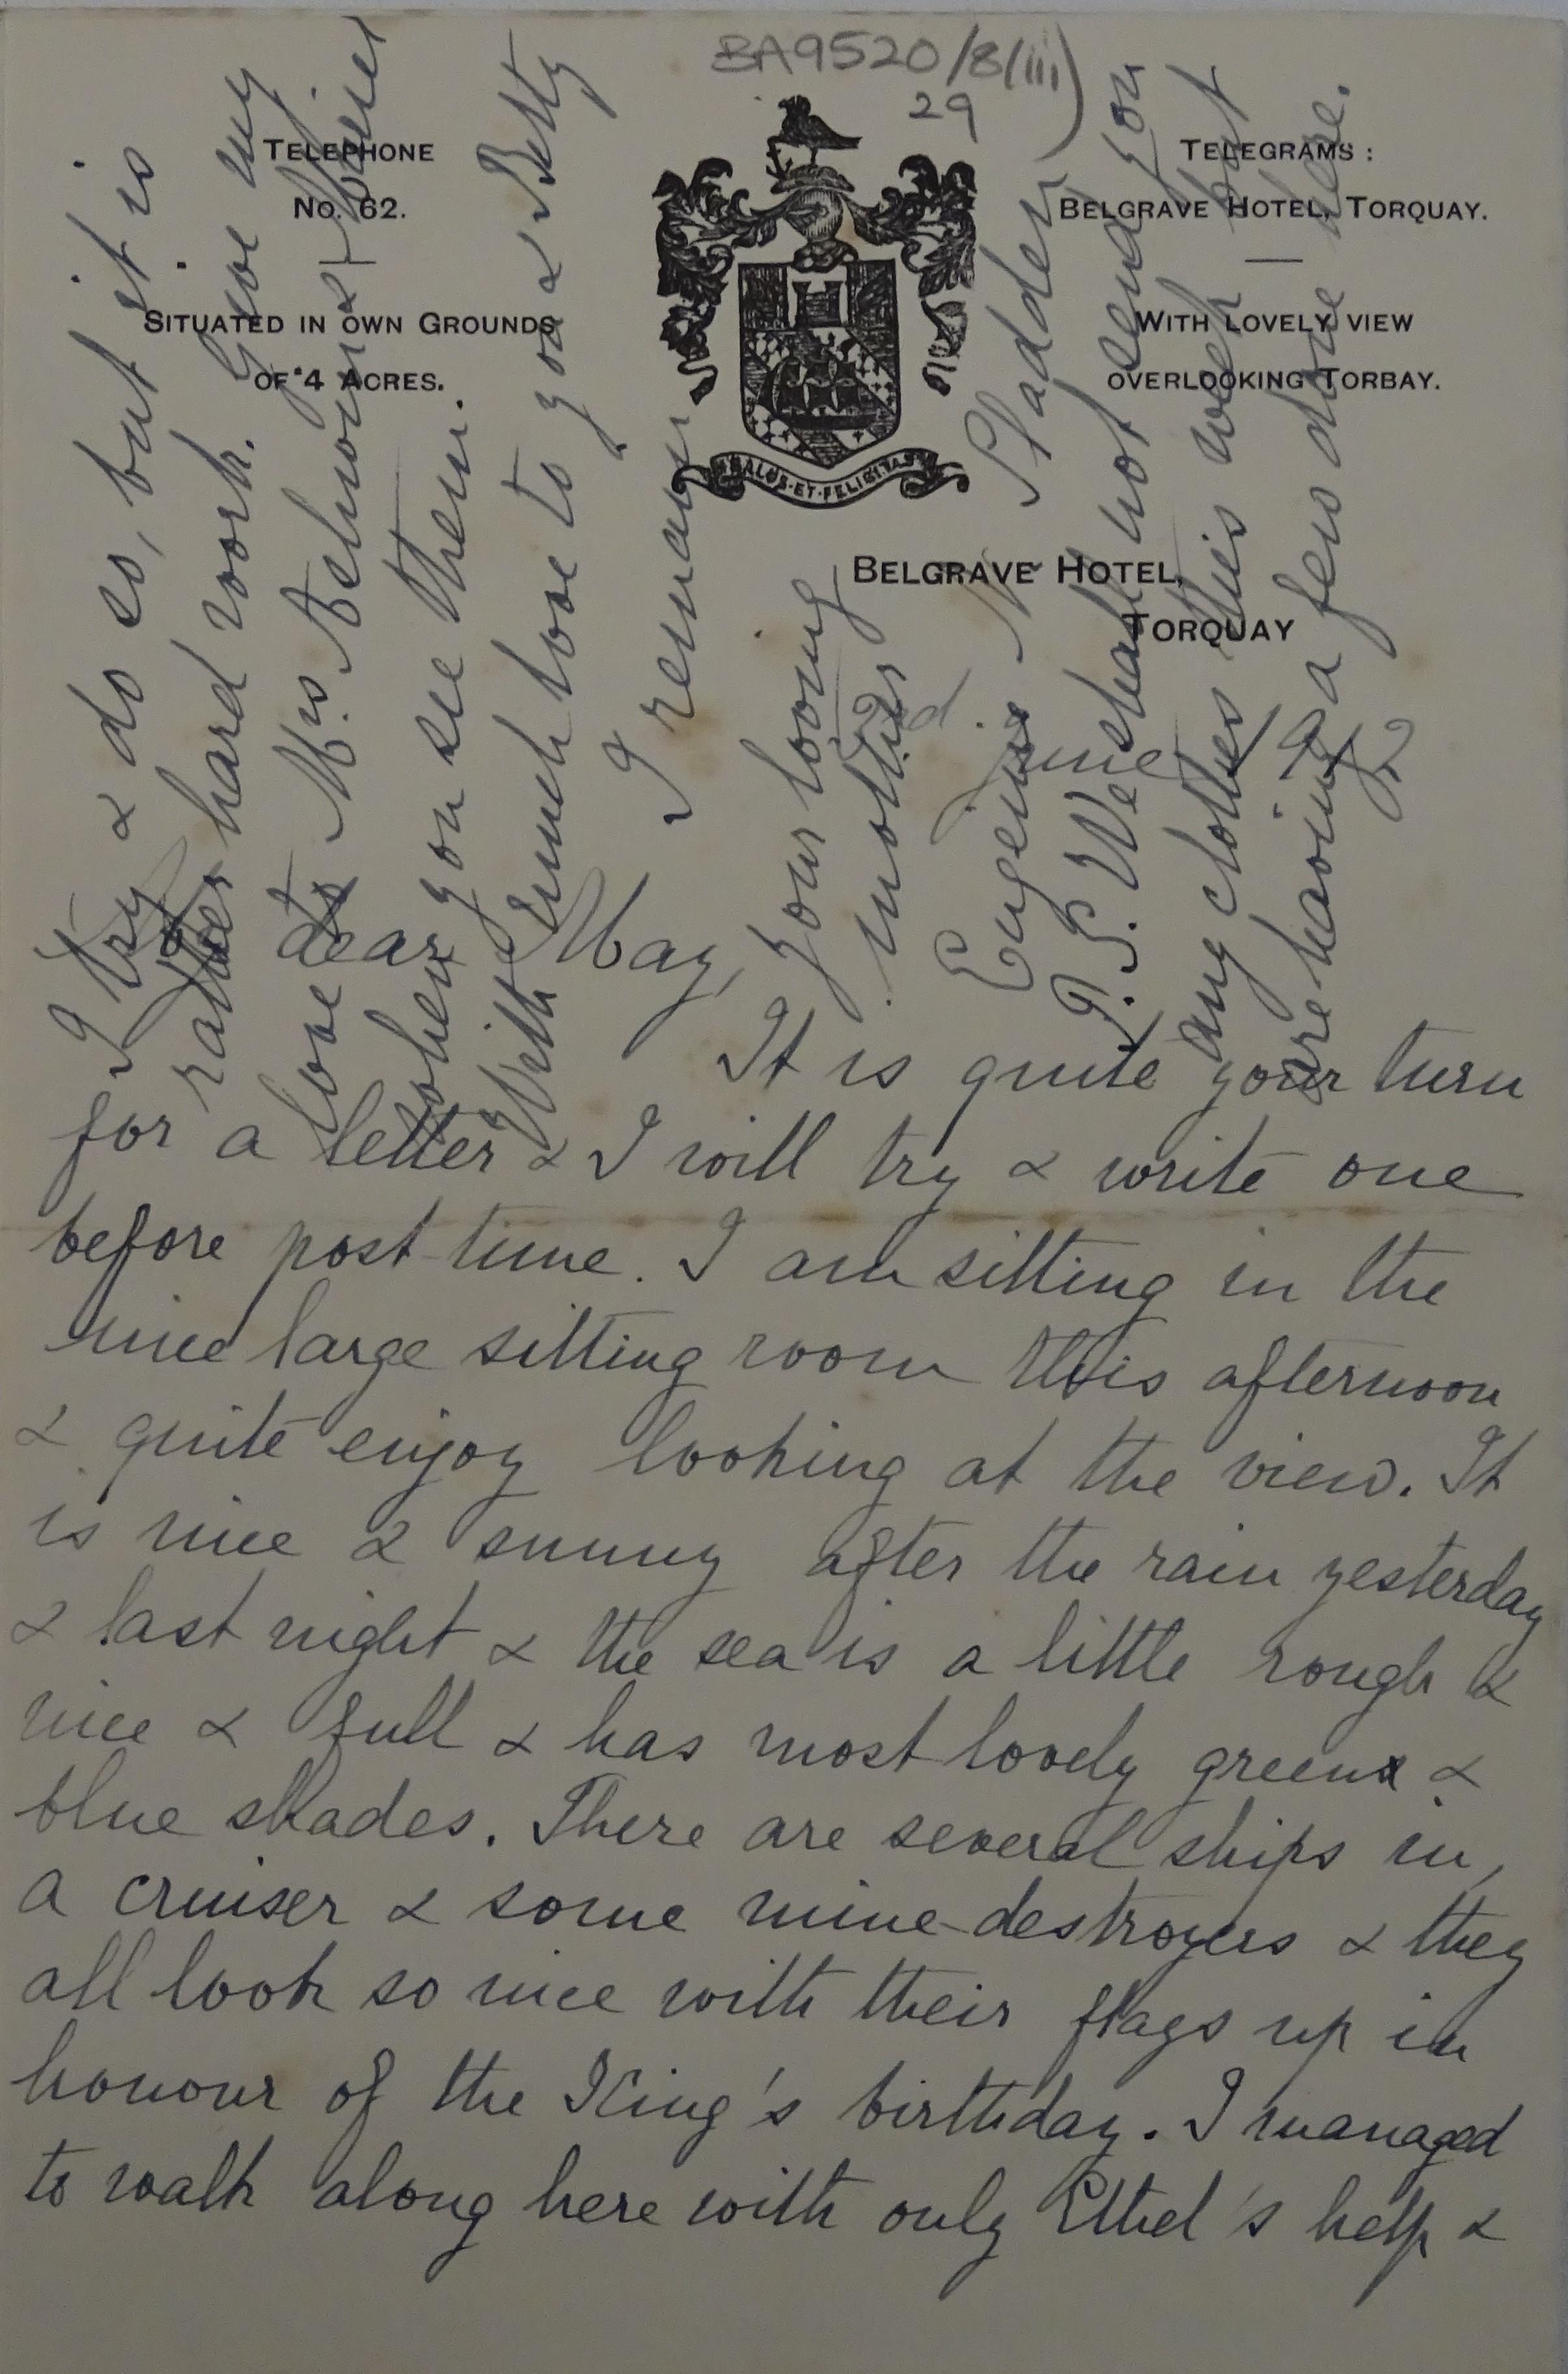 BA9520/8(iii)
29
TELEPHONE
No. 62.
SITUATED IN OWN GROUNDS
OF 4 ACRES.
TELEGRAMS:
BELGRAVE HOTEL, TORQUAY.
WITH LOVELY VIEW
OVERLOOKING TORBAY.
SALUS·ET·FELICITAS
BELGRAVE HOTEL,
TORQUAY
June
dear May,
It is quite your turn
for a letter & I will try & write one
before post time. I am sitting in the
nice large sitting room this afternoon
& quite enjoy looking at the view. It
is nice & sunny after the rain yesterday
& last night & the sea is a little rough &
nice & full & has most lovely green &
blue shades. There are several ships in,
a cruiser & some mine-destroyers & they
all look so nice with their flags up in
honour of the King's birthday. I managed
to walk along here with only Ethel's help &
I try & do so, but it is
rather hard work. Give my
love to Mrs
when you see them.
With much love to you & Betty
I remain
your loving
mother
Eugenie N. Hadden
P.S. We shall not send you
any clothes this week but
are having a few done here.